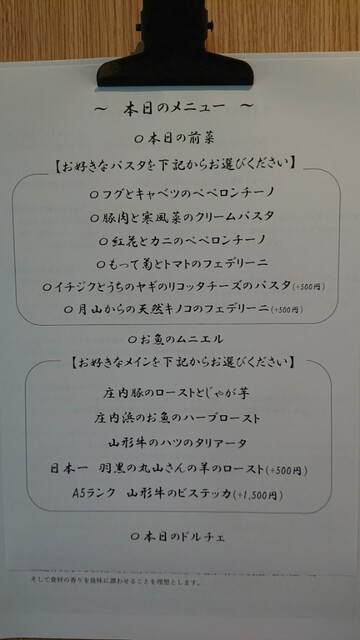 ～ 本日のメニュー ～
○本日の前菜
【お好きなパスタを下記からお選びください】
○フグとキャベツのペペロンチーノ
○豚肉と寒風菜のクリームパスタ
○紅花とカニのペペロンチーノ
○もって菊とトマトのフェデリーニ
○イチジクとうちのヤギのリコッタチーズのパスタ(+500円)
○月山からの天然キノコのフェデリーニ(+500円)
○お魚のムニエル
【お好きなメインを下記からお選びください】
庄内豚のローストとじゃが芋
庄内浜のお魚のハーブロースト
山形牛のハツのタリアータ
日本一 羽黒の丸山さんの羊のロースト(+500円)
A5ランク 山形牛のビステッカ(+1,500円)
○本日のドルチェ
そして食材の香りを風味に漂わせることを理想とします。